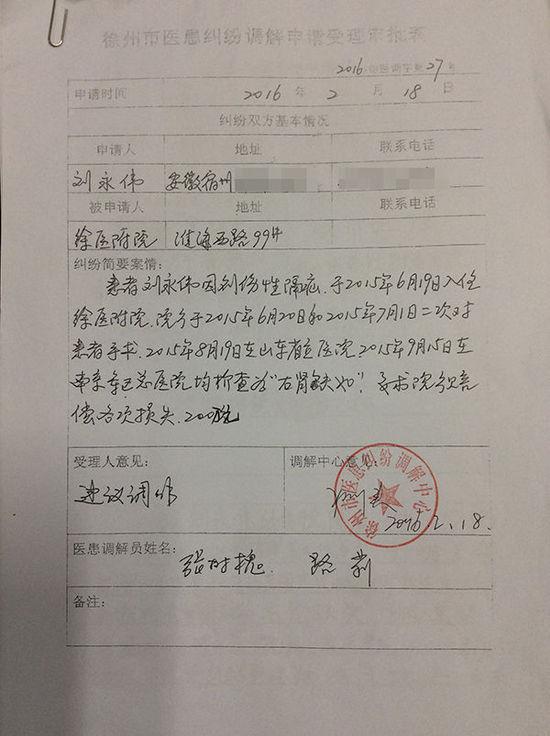 徐州市医患纠纷调解申请受理审批表
2016 医调字第27号
申请时间 2016 年 2 月 18 日
纠纷双方基本情况
申请人 地址 联系电话
刘永伟 安徽宿州
被申请人 地址 联系电话
徐医附院 淮海西路99#
纠纷简要案情：
患者刘永伟因创伤性隔疝.于2015年6月19日入住
徐医附院.院方于2015年6月20日和2015年7月1日二次对
患者手术.2015年8月19日在山东省立医院.2015年9月15日在
南京军区总医院均检查为“右肾缺如”.要求院方赔
偿各项损失.200万元
受理人意见： 调解中心意见：
建议调解
徐州市医患纠纷调解中心
2016.2.18.
医患调解员姓名：
张时槐. 路莉
备注：